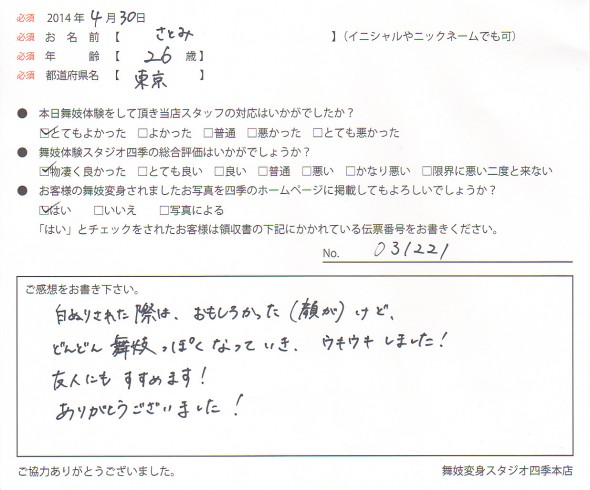 必須 2014年 4月 30日
必須 お名前【 さとみ 】(イニシャルやニックネームでも可)
必須 年齢【 26 歳】
必須 都道府県名【 東京 】
● 本日舞妓体験をして頂き当店スタッフの対応はいかがでしたか?
☑とてもよかった □よかった □普通 □悪かった □とても悪かった
● 舞妓体験スタジオ四季の総合評価はいかがでしょうか?
☑物凄く良かった □とても良い □良い □普通 □悪い □かなり悪い □限界に悪い二度と来ない
● お客様の舞妓変身されましたお写真を四季のホームページに掲載してもよろしいでしょうか?
☑はい □いいえ □写真による
「はい」とチェックをされたお客様は領収書の下記にかかれている伝票番号をお書きください。
No. 031221
ご感想をお書き下さい。
白ぬりされた際は、おもしろかった(顔が)けど、
どんどん舞妓っぽくなっていき、ウキウキしました!
友人にもすすめます!
ありがとうございました!
ご協力ありがとうございました。 舞妓変身スタジオ四季本店